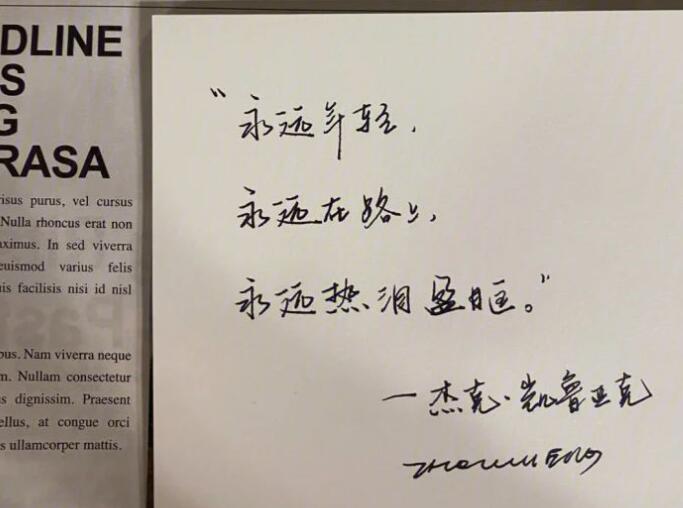 DLINE
S
G
RASA
risus purus, vel cursus
Nulla rhoncus erat non
aximus. In sed viverra
euismod varius felis
is facilisis nisi id nisl
bus. Nam viverra neque
m. Nullam consectetur
s dignissim. Praesent
ellus, at congue orci
s ullamcorper mattis.
“永远年轻,
永远在路上,
永远热泪盈眶。”
—杰克·凯鲁亚克